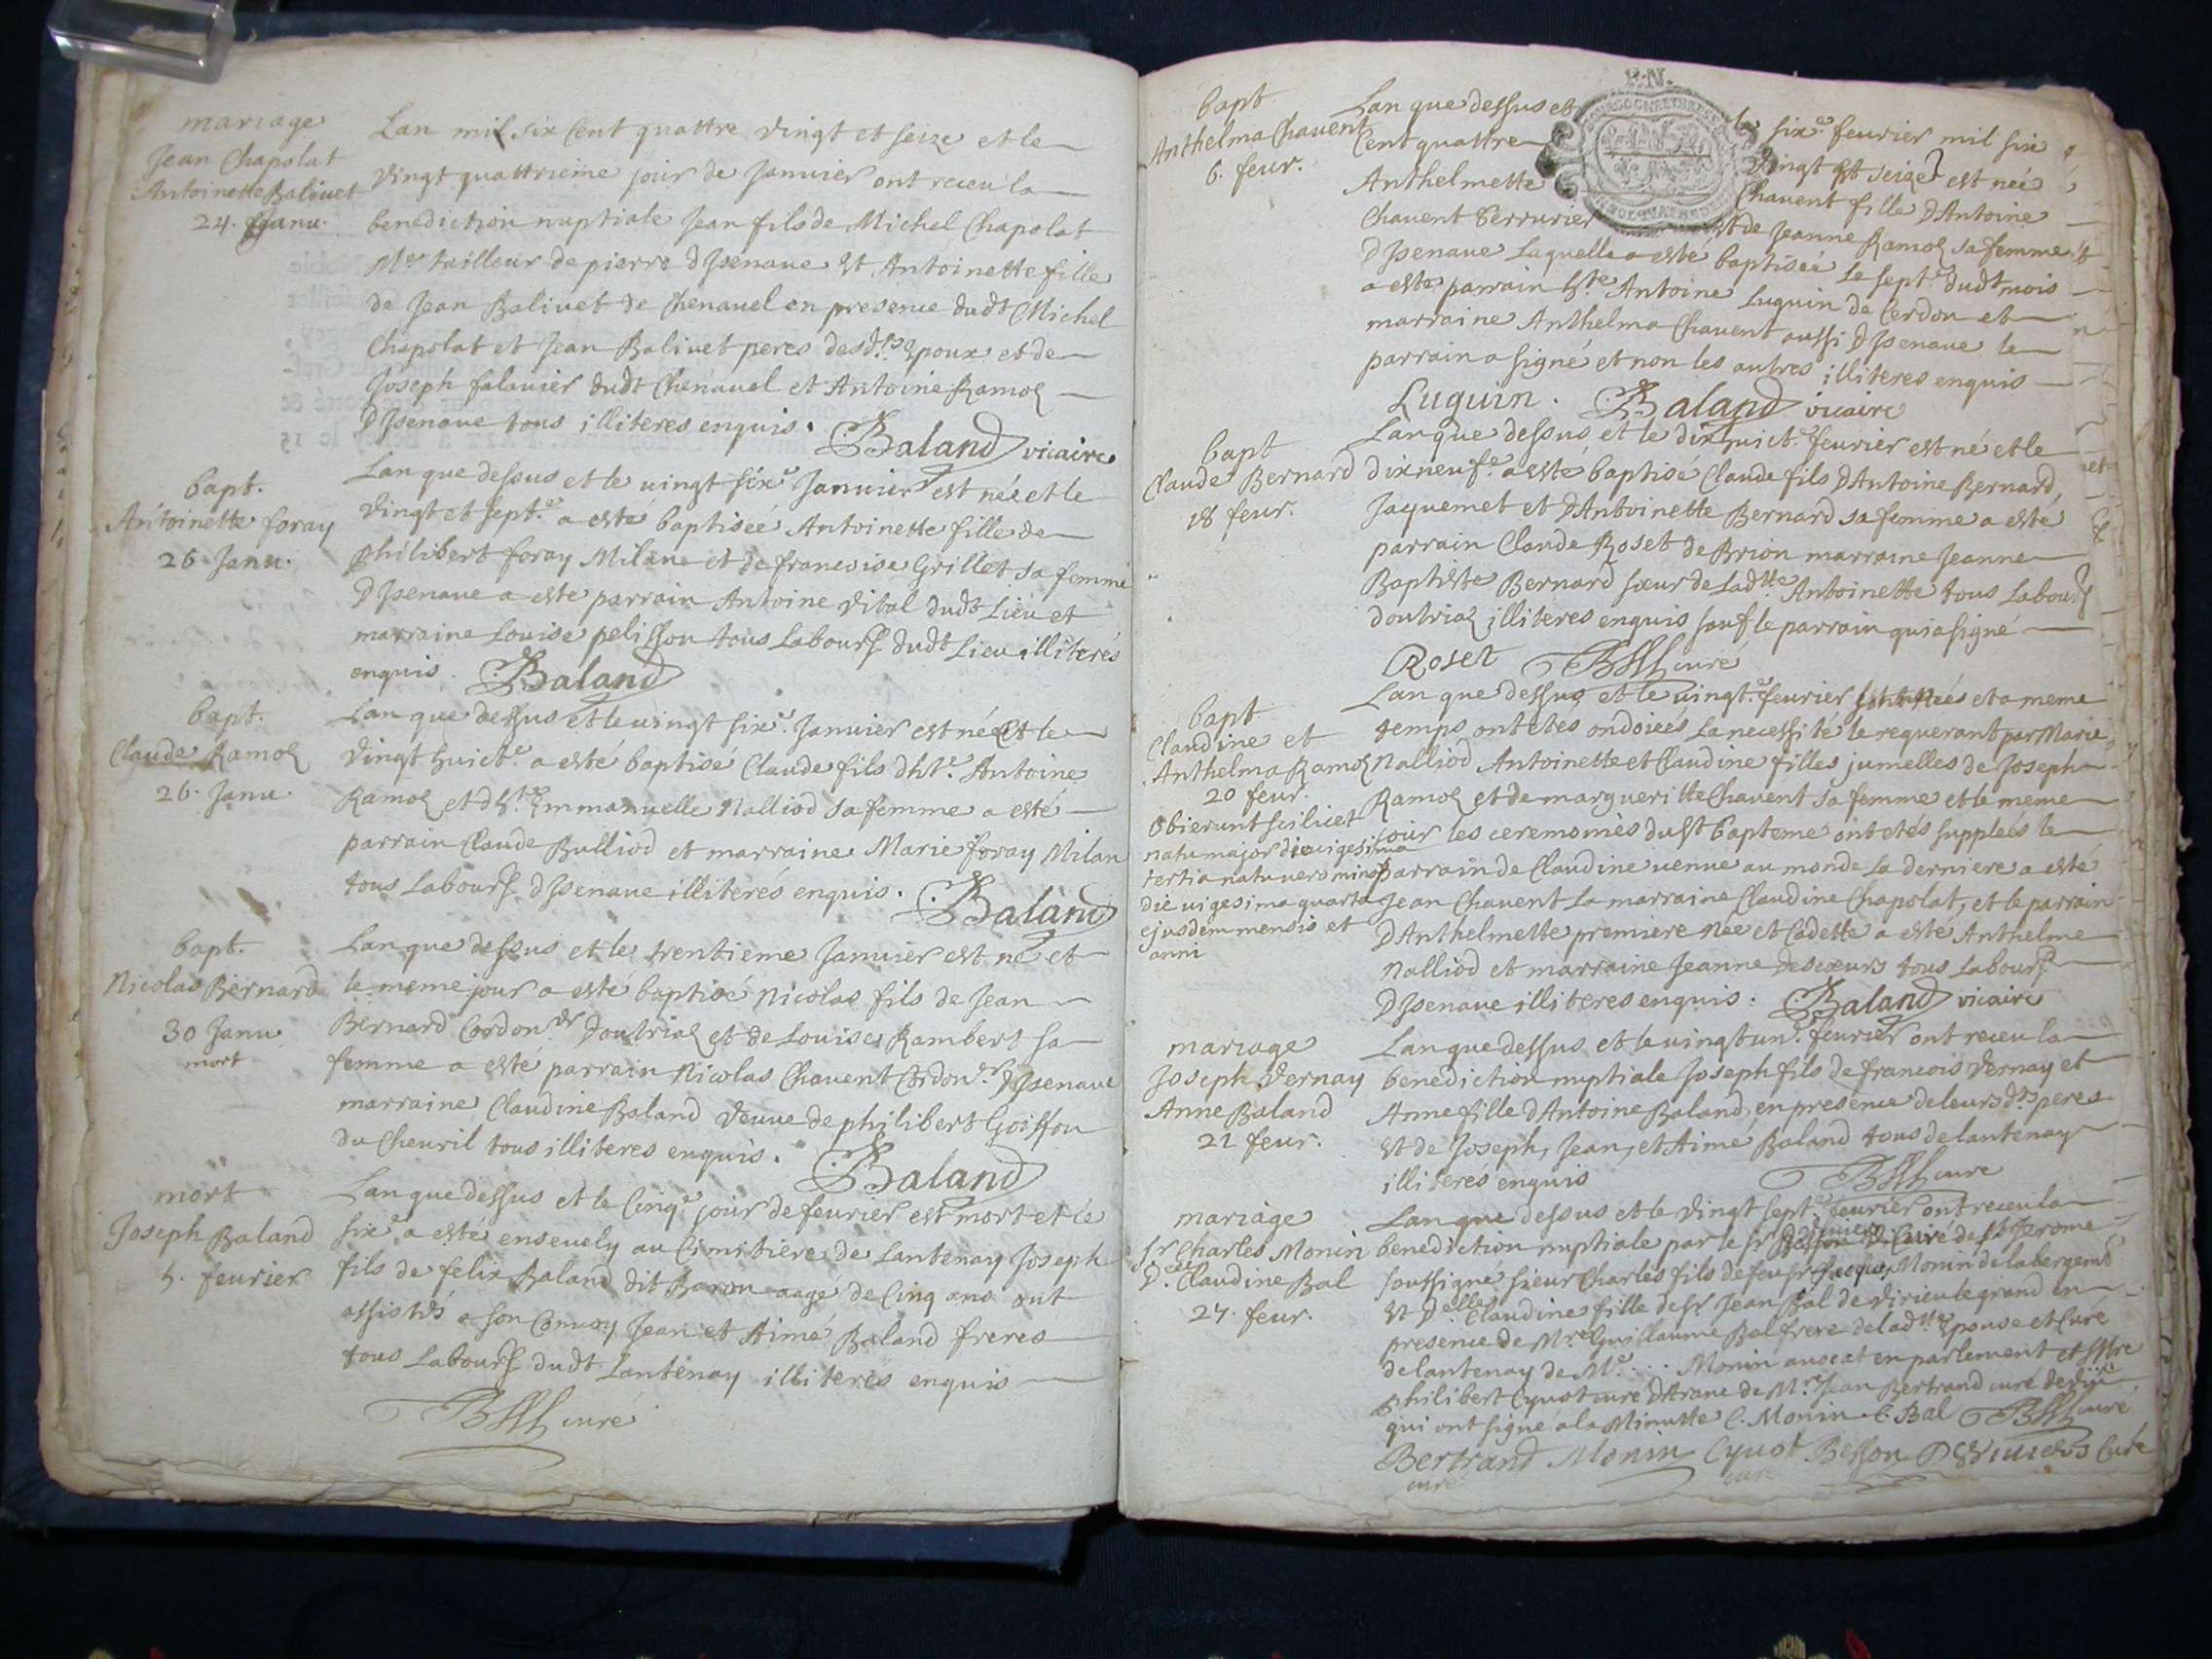 mariage
Jean Chapolat
Antoinette Baliuet
24. Janu.
Lan mil six Cent quattre vingt et seize et le
vingt quattrieme jour de Januier ont receu la
benediction nuptiale Jean fils de Michel Chapolat
Mre tailleur de pierre d'Isenaue et Antoinette fille
de Jean Baliuet de Chenauel en presence dudt Michel
Chapolat et Jean Baliuet peres desdts Epoux et de
Joseph falauier dudt Chenauel et Antoine Ramoz
d'Isenaue tous illiteres enquis. Baland vicaire
bapt.
Antoinette foray
26 Janu.
Lan que dessus et le uingt sixe Januier est née et le
vingt et septe a esté baptiseé Antoinette fille de
philibert foray Milane et de francoise Grillet sa femme
d'Isenaue a esté parrain Antoine vital dudt Lieu et
marraine Louise pelisson tous Labours dudt Lieu illiterés
enquis. Baland
bapt.
Claude Ramoz
26. Janu.
Lan que dessus et le uingt sixe Januier est né et le
vingt huicte a esté baptisé Claude fils dhte Antoine
Ramoz et dhte Emmanuelle Nalliod sa femme a esté
parrain Claude Bulliod et marraine Marie foray Milan
tous Labours d'Isenaue illiterés enquis. Baland
bapt.
Nicolas Bernard
30 Janu.
mort
Lan que dessus et le trentieme Januier est né et
le meme jour a esté baptisé Nicolas fils de Jean
Bernard Cordoner Doutriaz et de Louise Rambert sa
femme a esté parrain Nicolas Chauent Cordoner d'Isenaue
marraine Claudine Baland veuue de philibert Goisson
du Cheuril tous illiteres enquis. Baland
mort
Joseph Baland
5. feurier
Lan que dessus et le Cinqe jour de feurier est mort et le
sixe a esté enseuely au Cimitiere de Lantenay Joseph
fils de felix Baland dit Baron aagé de Cinq ans ont
assistés a son Conuoy Jean et Aimé Baland freres
tous Labours dudt Lantenay illiterés enquis
curé
bapt
Anthelma Chauent
6. feur.
Lan que dessus et le sixe feurier mil six
Cent quattre vingt et seize est neé
Anthelmette Chauent fille d'Antoine
Chauent Serrurier et de Jeanne Ramoz sa femme
d'Isenaue Laquelle a esté baptiseé Le septe dudt mois
a esté parrain hte Antoine Luguin de Cerdon et
marraine Anthelma Chauent aussi d'Isenaue le
parrain a signé et non les autres illiteres enquis
Luguin. Baland vicaire
bapt
Claude Bernard
18 feur.
Lan que dessus et le dixhuicte feurier est né et le
dixneufe a esté baptisé Claude fils d'Antoine Bernard
Jaquemet et d'Antoinette Bernard sa femme a esté
parrain Claude Roset de Brion marraine Jeanne
Baptiste Bernard soeur de Ladtte Antoinette tous Labours
doutriaz illiteres enquis sauf le parrain qui a signé
Roset curé
bapt
Claudine et
Anthelma Ramoz
20 feur.
Obierunt scilicet
natu major die uigesima
tertia natu uero minor
die uigesima quarta
ejusdem mensis et
anni
Lan que dessus et le uingte feurier sont neés et a meme
temps ont etes ondoieés La necessité le requerant par Marie
Nalliod Antoinette et Claudine filles jumelles de Joseph
Ramoz et de margueritte Chauent sa femme et le meme
jour les ceremonies du st bapteme ont etés suppleés le
parrain de Claudine uenue au monde la derniere a esté
Jean Chauent La marraine Claudine Chapolat, et le parrain
d'Anthelmette premiere née et Cadette a esté Anthelme
Nalliod et marraine Jeanne Descoeurs tous Labours
d'Isenaue illiteres enquis. Baland vicaire
mariage
Joseph Vernay
Anne Baland
21 feur.
Lan que dessus et le uingt une feurier ont receu la
benediction nuptiale Joseph fils de francois Vernay et
Anne fille d'Antoine Baland en presence de leursdts peres
et de Joseph, Jean, et Aimé Baland tous de lantenay
illiterés enquis curé
mariage
Sr Charles Monin
Dlle Claudine Bal
27. feur.
Lan que dessus et le vingt septe feurier ont receu la
benediction nuptiale par le sr Curé de St Jerome
soussigné sieur Charles fils de feu sr Monin de labergemt
et Delle Claudine fille de sr Jean Bal de virieu le grand en
presence de Mre Guillaume Bal frere de ladtte Epouse et Curé
de lantenay de Me ... Monin auocat en parlement et
philibert Cyuot curé d'Arane de Mre Jean Bertrand curé de
qui ont signé a la Minutte C. Monin C. Bal curé
Bertrand Monin Cyuot Besson Curé
curé curé